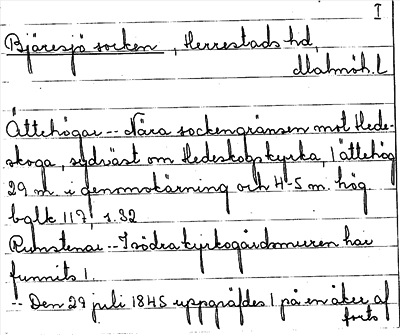 I
Bjäresjö socken, Herrestads hd,
Malmöh. L
Ättehögar -- Nära sockengränsen mot Hede-
skoga, sydväst om Hedeskoga kyrka, 1 ättehög
29 m. i genomskärning och 4-5 m. hög
bglk 117, s. 32
Runstenar -- I södra kyrkogårdsmuren har
funnits 1.
-- Den 29 juli 1845 uppgräfdes 1 på en åker af
forts